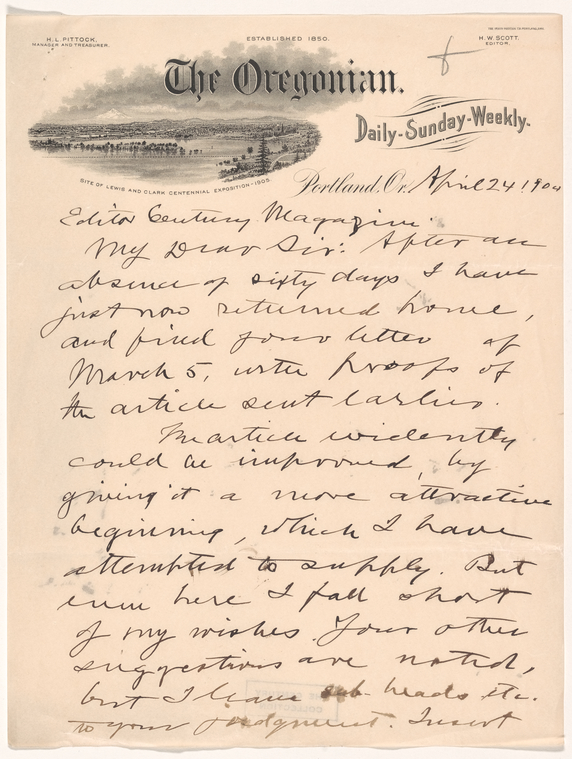 H. L. PITTOCK.
MANAGER AND TREASURER.
ESTABLISHED 1850.
H. W. SCOTT.
EDITOR.
The Oregonian.
Daily-Sunday-Weekly.
SITE OF LEWIS AND CLARK CENTENNIAL EXPOSITION-1905.
Portland, Or. April 24 1904
Editor Century Magazine.
My Dear Sir: After an
absence of sixty days I have
just now returned home,
and find your letter of
March 5, with proofs of
the article sent earlier.
The article evidently
could be improved, by
giving it a more attractive
beginning, which I have
attempted to supply. But
even here I fall short
of my wishes. Your other
suggestions are noted,
but I leave sub-heads etc.
to your judgment. Insert